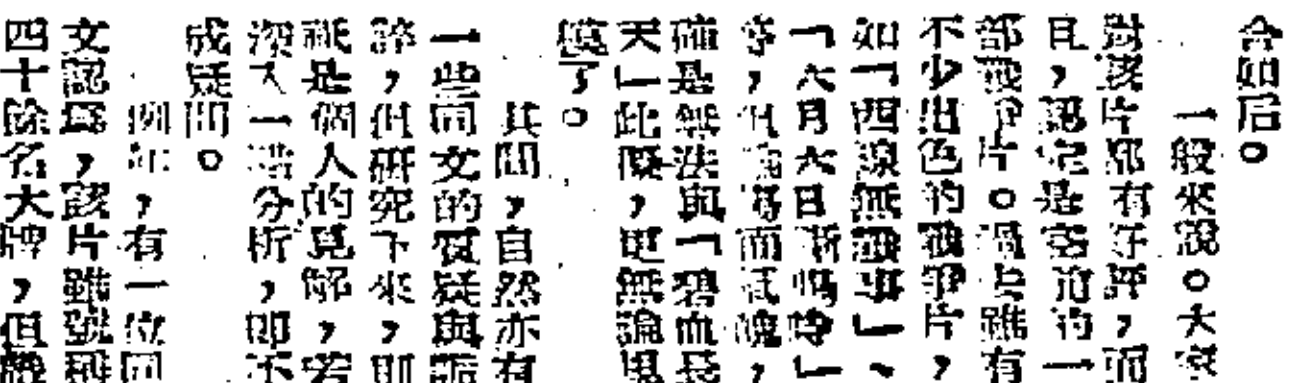 合如后。
一般來說。大家
對該片都有好評，而
且，認定是空前的一
部戰爭片。過去雖有
不少出色的戰爭片，
如「四線無戰事」、
「六月六日斷魂時」
等，但論場面氣魄，
確是無法與「碧血長
天」此硬，更無論規
模了。
其間，自然亦有
一些同文的質疑與詬
誶，但研究下來，則
祇是個人的見解，若
深入一點分析，即不
成疑問。
例如，有一位同
文認爲，該片雖號稱
四十餘名大牌，但